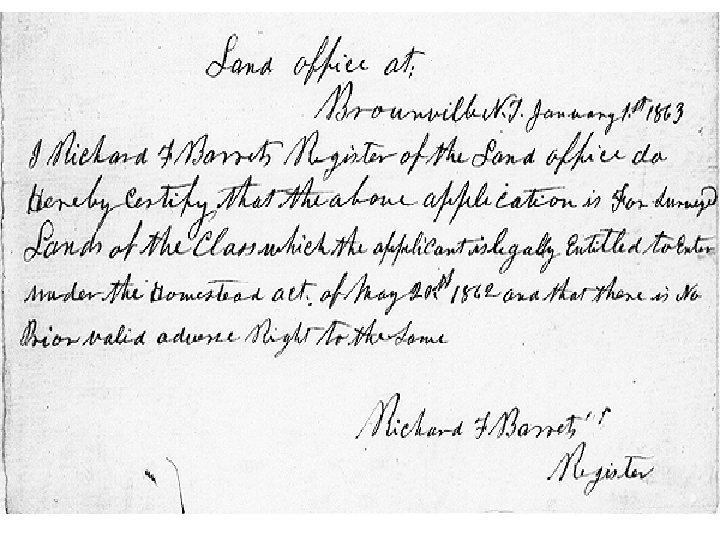 Land office at;
Brownville N.T. January 1.st 1863
I Richard F Barrets Register of the Land office do
Hereby Certify that the above application is For Surveyed
Lands of the Class which the applicant is legally Entitled to Enter
under the Homestead act. of May 20th 1862 and that there is No
Prior valid adverse Right to the Same
Richard F Barrets
Register